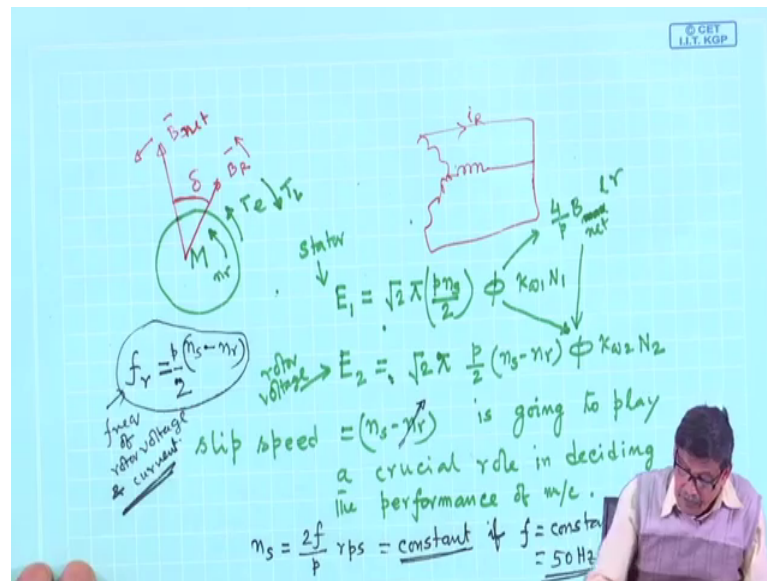 © CET
I.I.T. KGP
B̄net
δ
B̄R
Te
TL
M
nr
iR
stator
4/p Bnet l r
E₁ = √2 π (p ns/2) φ kω1 N1
fr = p/2 (ns - nr)
rotor voltage → E₂ = √2 π p/2 (ns - nr) φ kω2 N2
freq of rotor voltage & current
slip speed = (ns - nr) is going to play
a crucial role in deciding
the performance of m/c.
ns = 2f/p rps = constant if f = consta
= 50 Hz